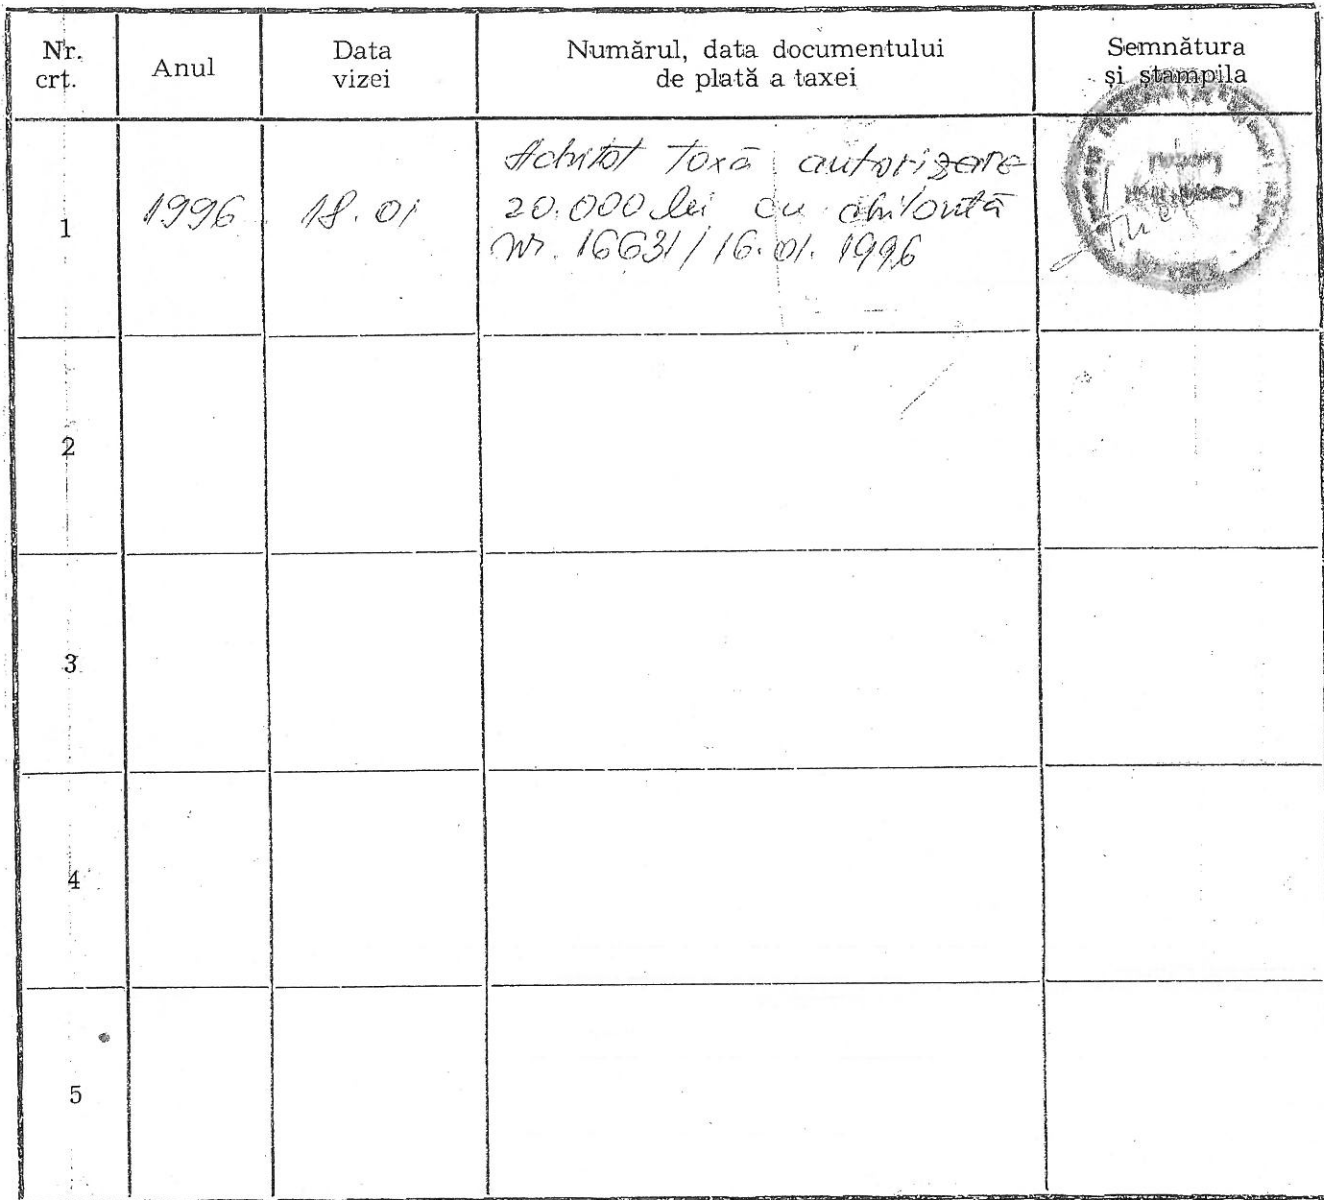 Nr. crt.
Anul
Data vizei
Numărul, data documentului
de plată a taxei
Semnătura
și ștampila
1
1996
18.01
Achitat taxă autorizare
20.000 lei cu chitanță
nr. 16631/16.01.1996
Consiliul
Local
2
3
4
5